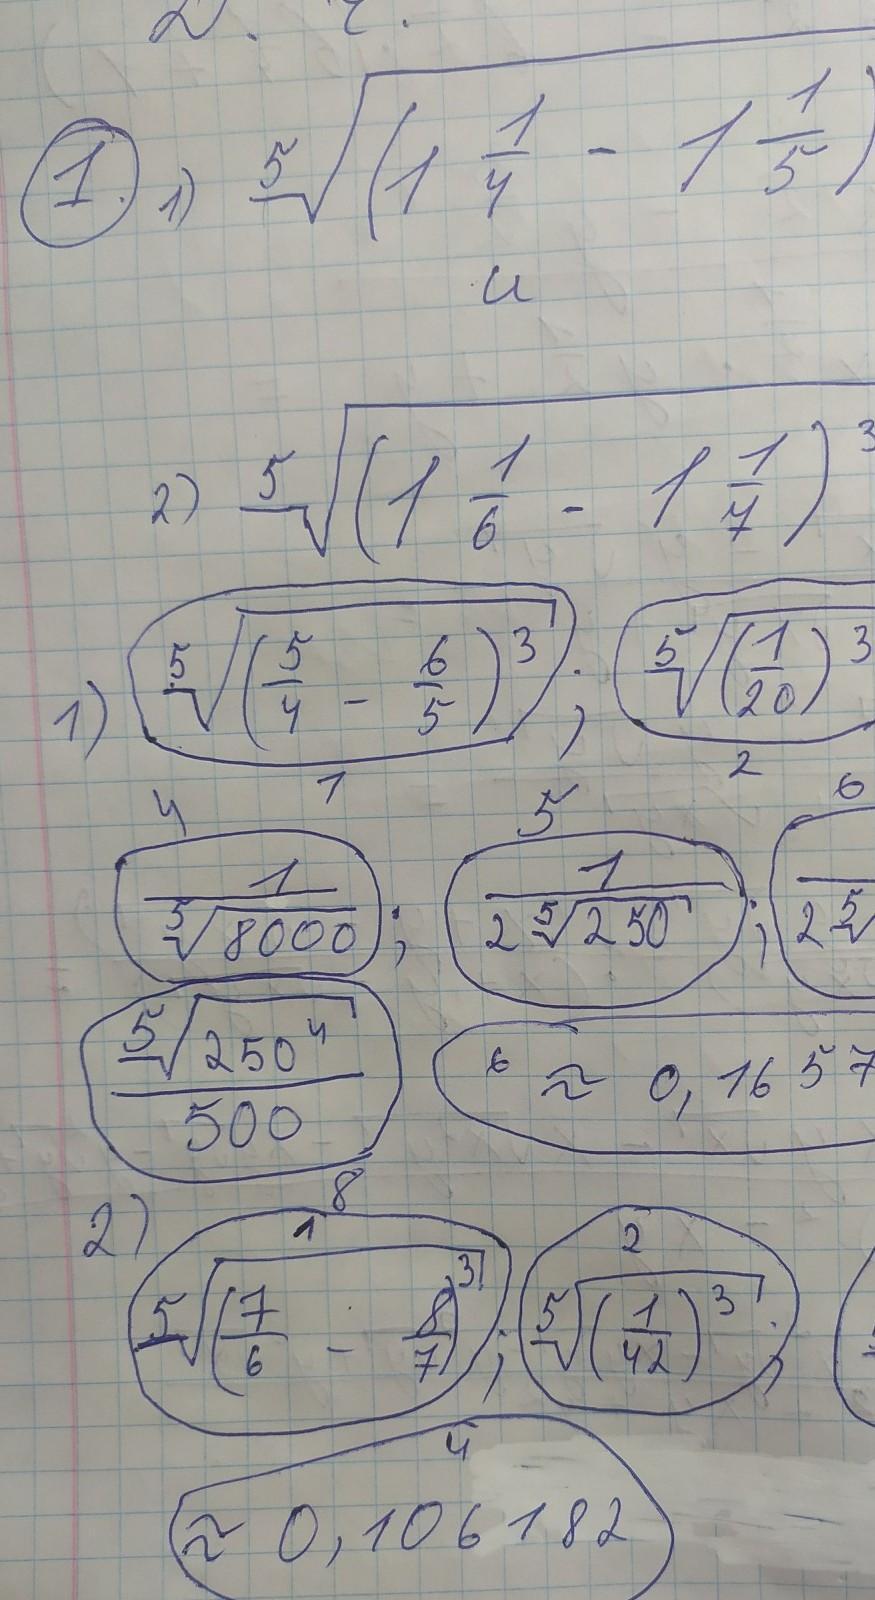 ① 1) ⁵√(1 1/4 - 1 1/5)
и
2) ⁵√(1 1/6 - 1 1/7)³
1) ⁵√(5/4 - 6/5)³; ⁵√(1/20)³
1 2
4 5 6
1/⁵√8000; 1/(2 ⁵√250); 2 ⁵√
⁵√250⁴/500 6 ≈ 0,1657
8
2) 1 2
⁵√(7/6 - 8/7)³; ⁵√(1/42)³;
4
≈ 0,106182